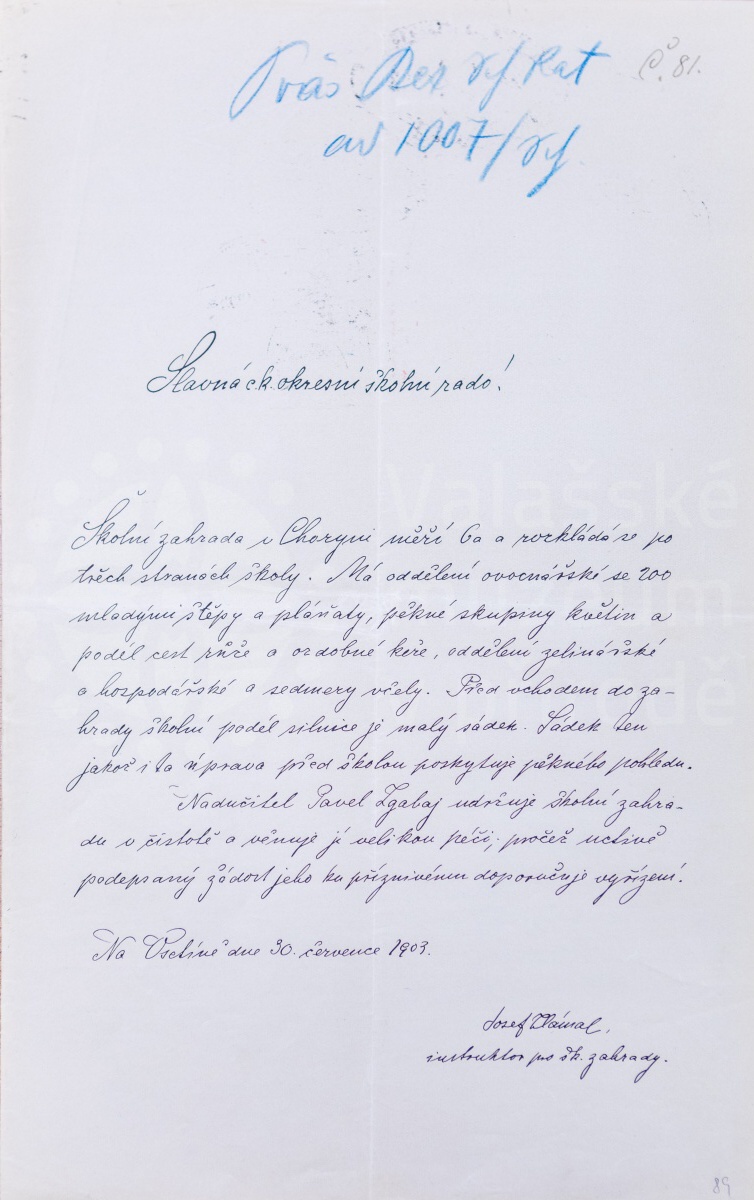 Präs Bez. Sch. Rat
ad 1007/sch
Č. 81.
Slavná c.k. okresní školní rado!
Školní zahrada v Choryni měří 6a a rozkládá se po
třech stranách školy. Má oddělení ovocnářské se 200
mladými štěpy a pláňaty, pěkné skupiny květin a
podél cest růže a ozdobné keře, oddělení zelinářské
a hospodářské a sedmery včely. Před vchodem do za-
hrady školní podél silnice je malý sádek. Sádek ten
jakož i ta úprava před školou poskytuje pěkného pohledu.
Nadučitel Pavel Zgabaj udržuje školní zahra-
du v čistotě a věnuje jí velikou péči; pročež uctivě
podepsaný žádost jeho ku příznivému doporučuje vyřízení.
Na Vsetíně dne 30. července 1903.
Josef
instruktor pro šk. zahrady.
89
Valašské